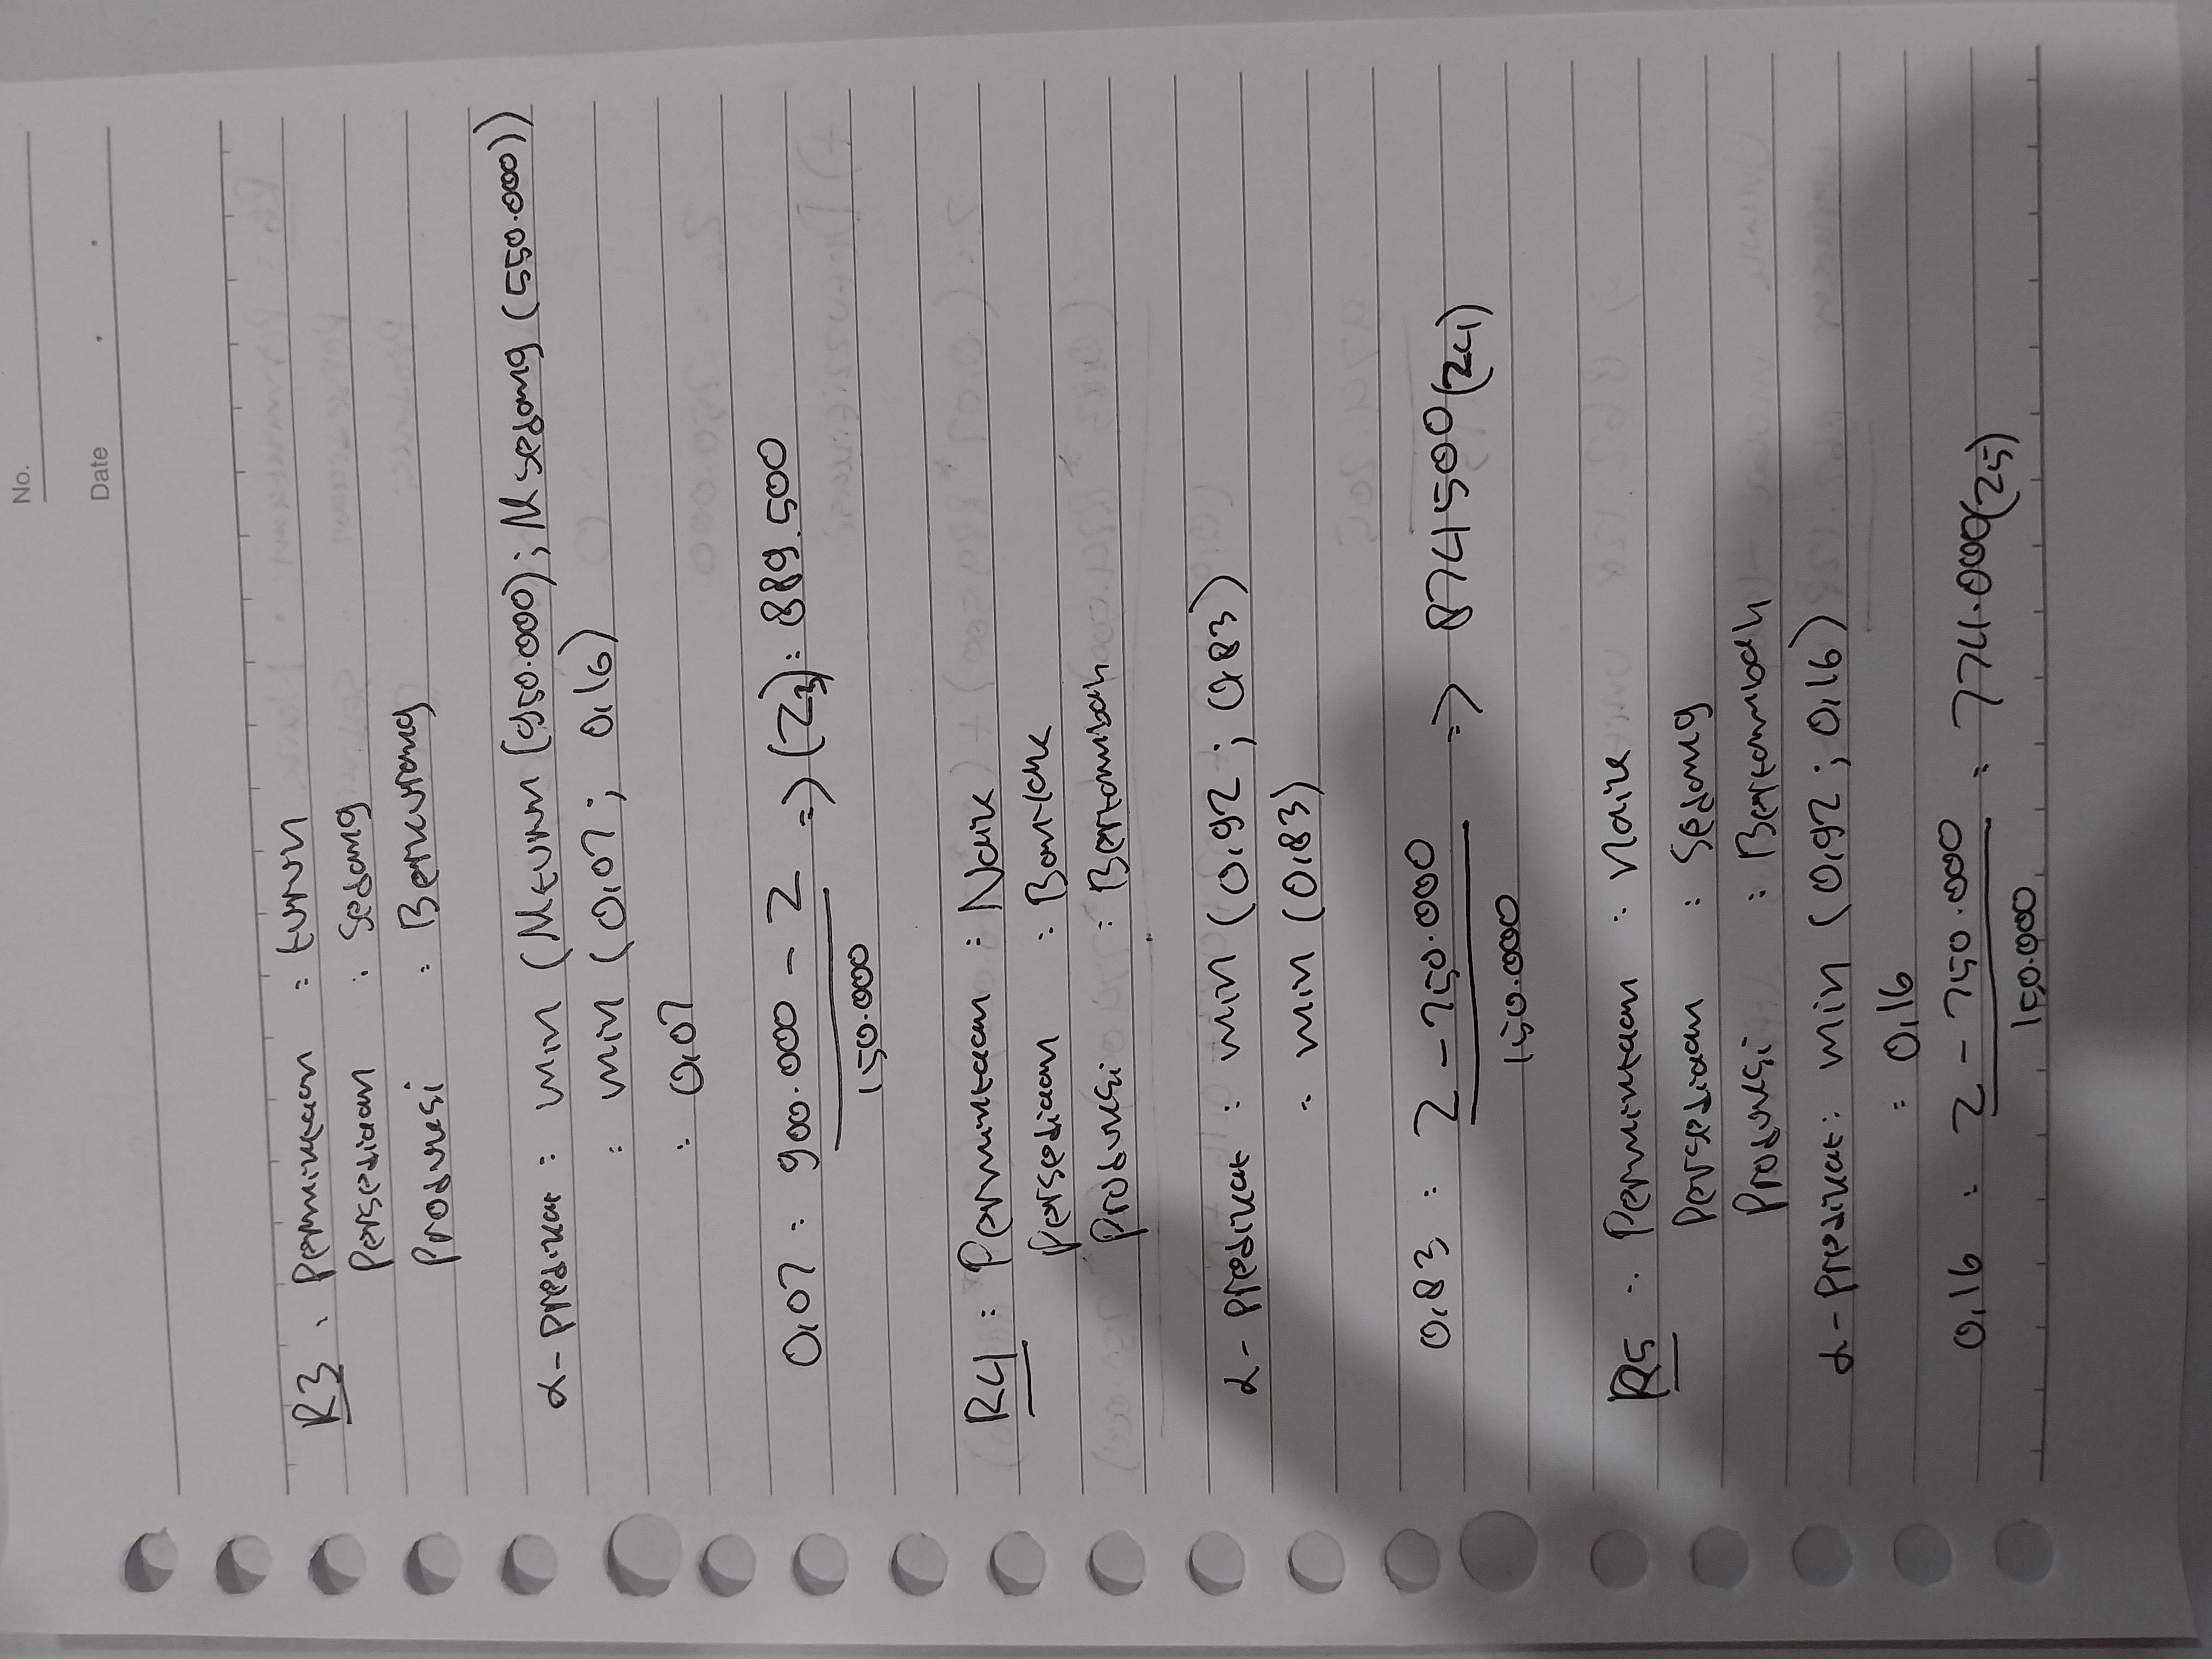 No.
Date
R3 : Permintaan : turun
Persediaan : Sedang
Produksi : Berkurang
α-predikat : min (μturun (950.000); μsedang (550.000))
: min (0,07 ; 0,16)
: 0,07
0,07 : 900.000 - Z => (Z3) : 889.500
150.000
R4 : Permintaan : Naik
Persediaan : Banyak
Produksi : Bertambah
α-predikat : min (0,92 ; 0,83)
= min (0,83)
0,83 : Z - 750.000 => 874500 (Z4)
150.000
R5 : Permintaan : naik
Persediaan : Sedang
Produksi : Bertambah
α-predikat : min (0,92 ; 0,16)
= 0,16
0,16 : Z - 750.000 : 774.000 (Z5)
150.000